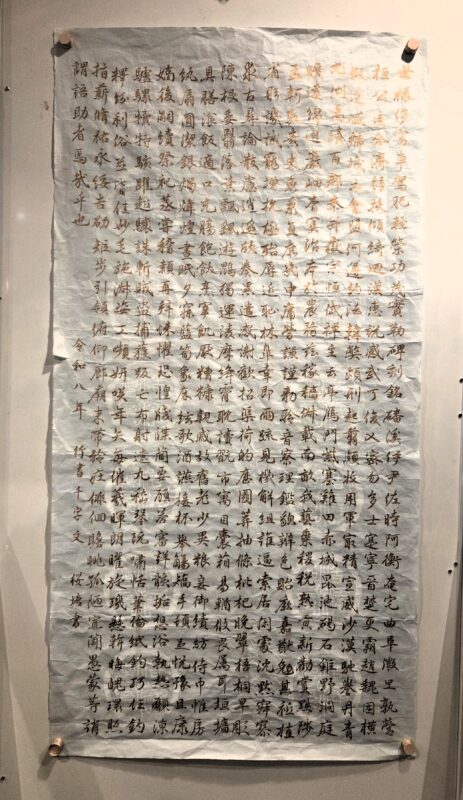 世祿侈富車駕肥輕策功茂實勒碑刻銘磻溪伊尹佐時阿衡奄宅曲阜微旦孰營
桓公匡合濟弱扶傾綺迴漢惠說感武丁俊乂密勿多士寔寧晉楚更霸趙魏困橫
假途滅虢踐土會盟何遵約法韓弊煩刑起翦頗牧用軍最精宣威沙漠馳譽丹青
九州禹跡百郡秦并嶽宗恒岱禪主云亭雁門紫塞雞田赤城昆池碣石鉅野洞庭
曠遠綿邈巖岫杳冥治本於農務茲稼穡俶載南畝我藝黍稷稅熟貢新勸賞黜陟
孟軻敦素史魚秉直庶幾中庸勞謙謹勅聆音察理鑑貌辨色貽厥嘉猷勉其祗植
省躬譏誡寵增抗極殆辱近恥林皋幸即兩疏見機解組誰逼索居閑處沈默寂寥
求古尋論散慮逍遙欣奏累遣慼謝歡招渠荷的歷園莽抽條枇杷晚翠梧桐早彫
陳根委翳落葉飄颻遊鵾獨運凌摩絳霄耽讀翫市寓目囊箱易輶攸畏屬耳垣牆
具膳飡飯適口充腸飽飫烹宰飢厭糟糠親戚故舊老少異糧妾御績紡侍巾帷房
紈扇圓潔銀燭煒煌晝眠夕寐藍筍象床弦歌酒讌接杯舉觴矯手頓足悅豫且康
嫡後嗣續祭祀蒸嘗稽顙再拜悚懼恐惶牋牒簡要顧答審詳骸垢想浴執熱願涼
驢騾犢特駭躍超驤誅斬賊盜捕獲叛亡布射遼丸嵇琴阮嘯恬筆倫紙鈞巧任釣
釋紛利俗並皆佳妙毛施淑姿工嚬妍咲年矢每催羲暉朗曜旋璣懸斡晦魄環照
指薪脩祜永綏吉劭矩步引領俯仰廊廟束帶矜莊徘徊瞻眺孤陋寡聞愚蒙等誚
謂語助者焉哉乎也　令和八年　行書千字文　桜塘書